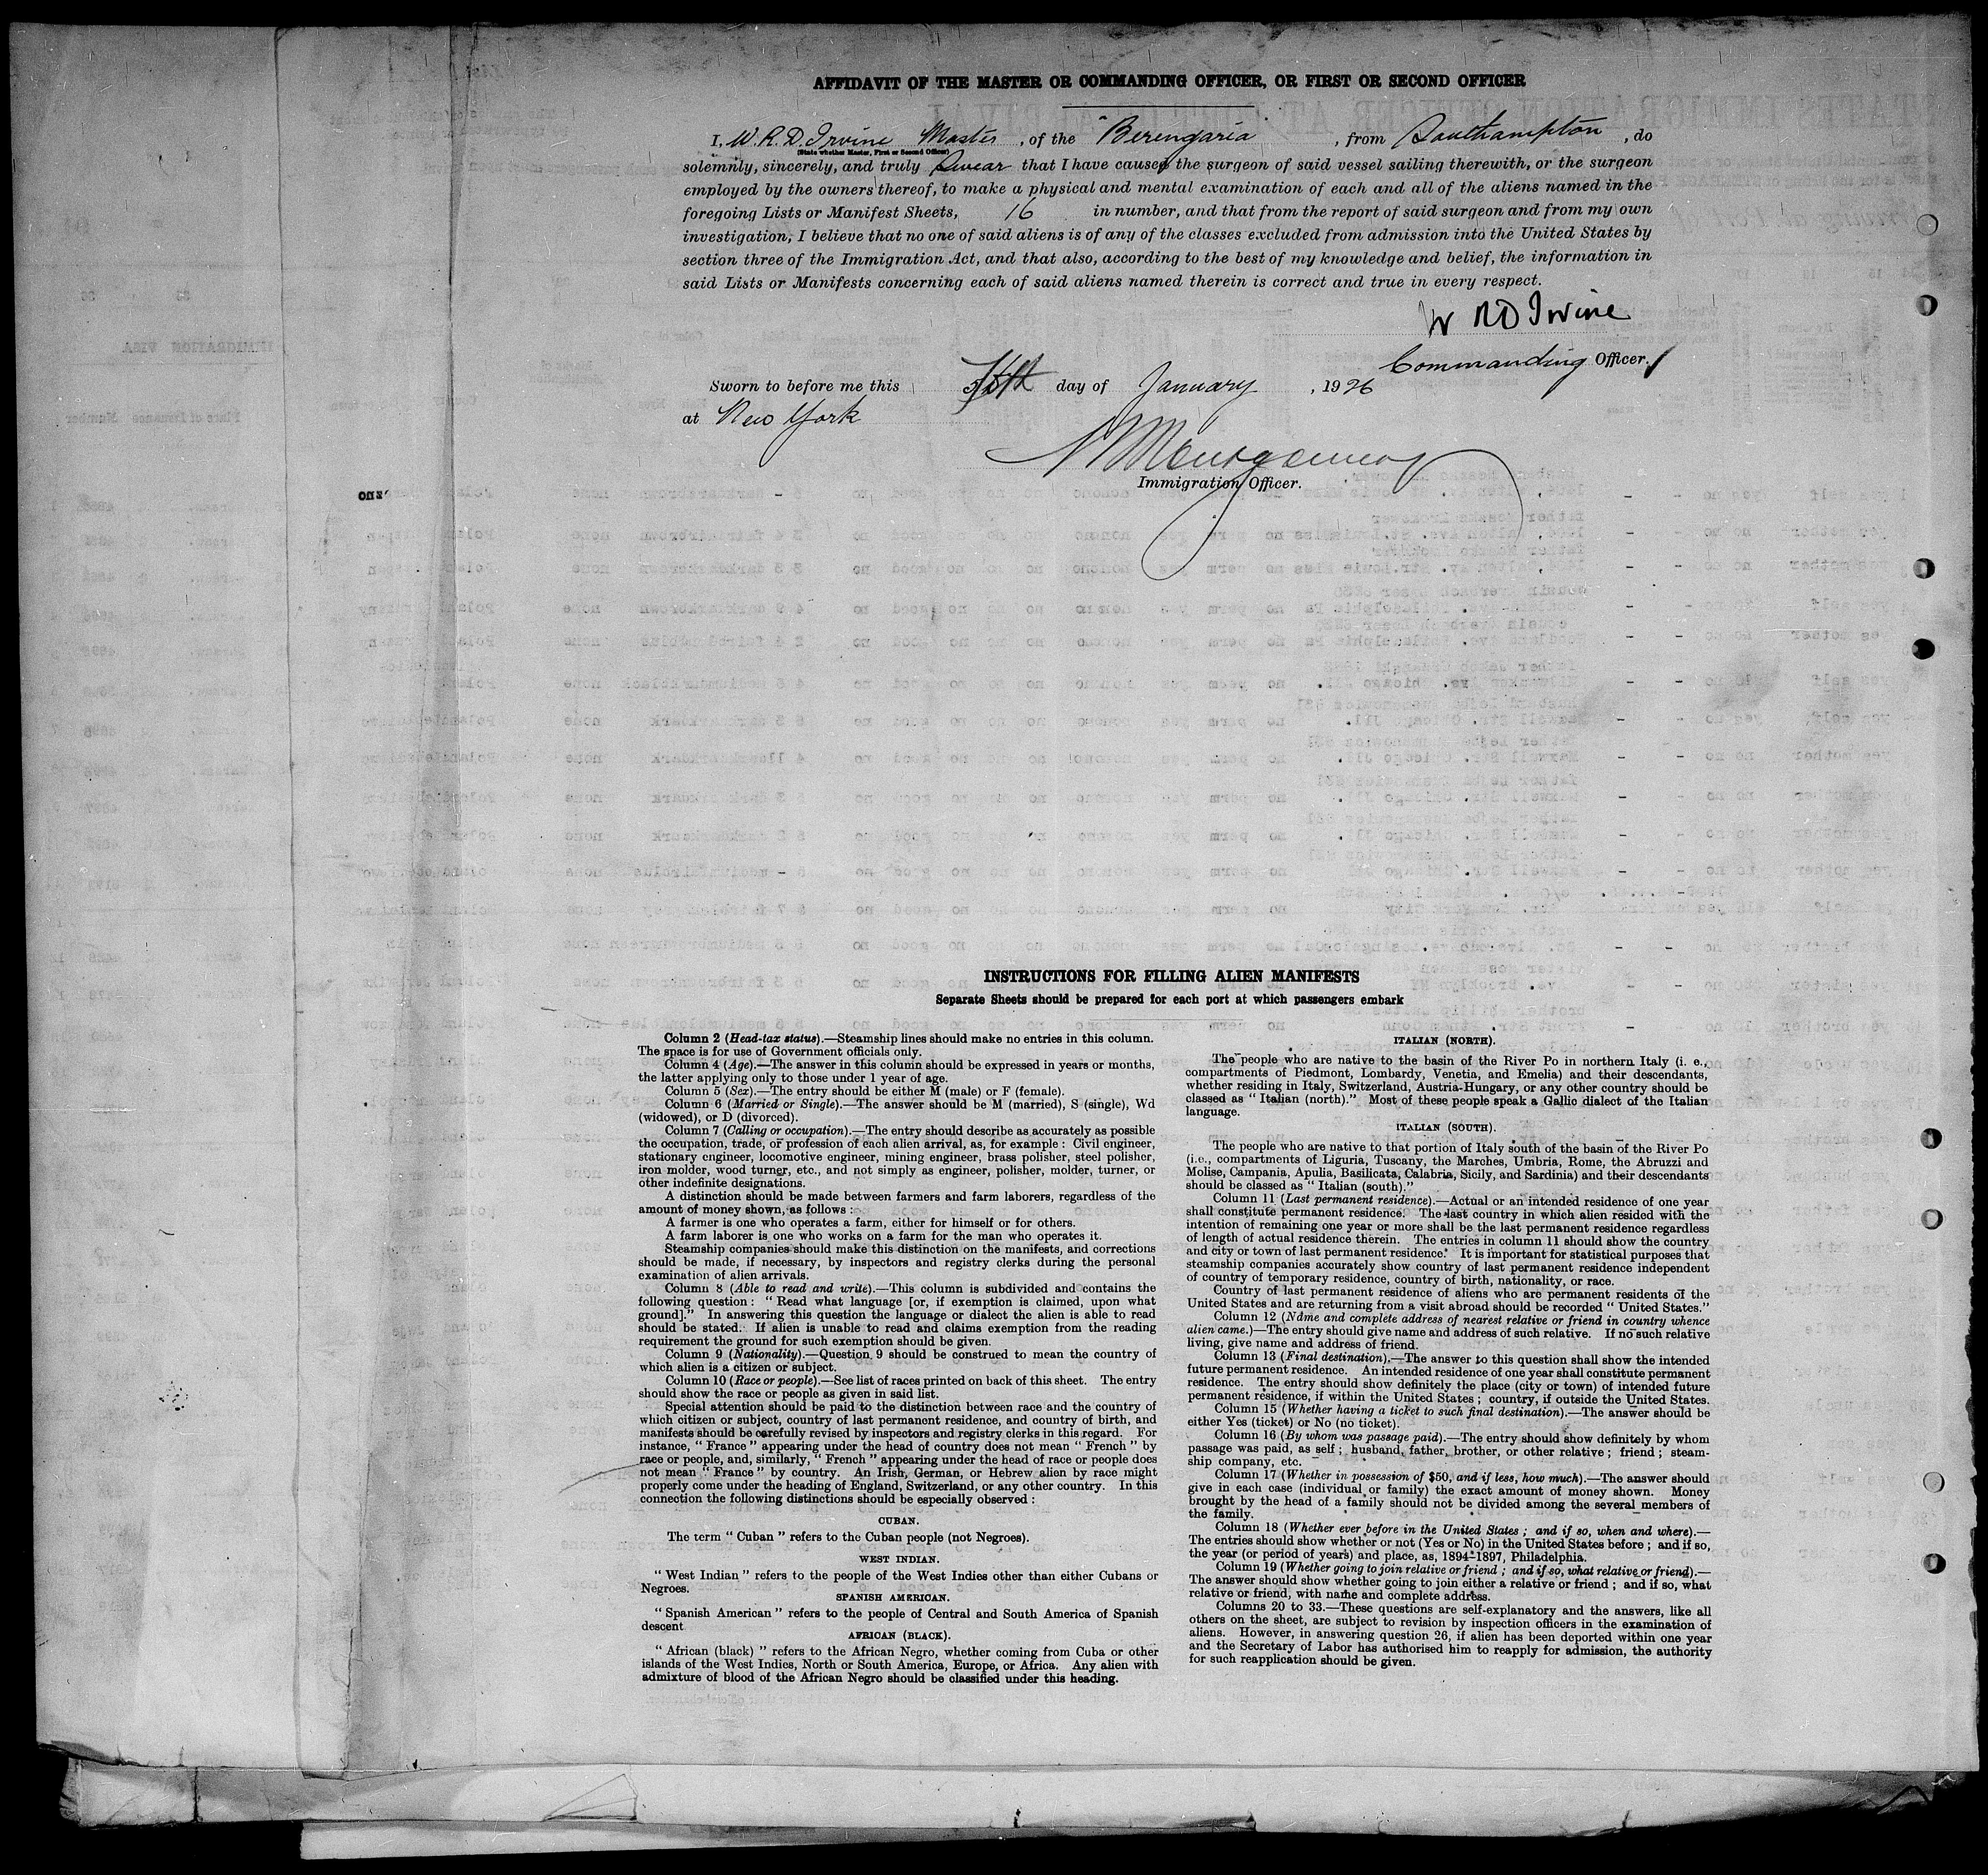 AFFIDAVIT OF THE MASTER OR COMMANDING OFFICER, OR FIRST OR SECOND OFFICER
I, W. R. D. Irvine Master, of the "Berengaria", from Southampton, do
(State whether Master, First or Second Officer)
solemnly, sincerely, and truly Swear that I have caused the surgeon of said vessel sailing therewith, or the surgeon
employed by the owners thereof, to make a physical and mental examination of each and all of the aliens named in the
foregoing Lists or Manifest Sheets, 16 in number, and that from the report of said surgeon and from my own
investigation, I believe that no one of said aliens is of any of the classes excluded from admission into the United States by
section three of the Immigration Act, and that also, according to the best of my knowledge and belief, the information in
said Lists or Manifests concerning each of said aliens named therein is correct and true in every respect.
W R D Irvine
Commanding Officer.
Sworn to before me this day of January, 1926
at New York
Montgomery
Immigration Officer.
INSTRUCTIONS FOR FILLING ALIEN MANIFESTS
Separate Sheets should be prepared for each port at which passengers embark
Column 2 (Head-tax status).—Steamship lines should make no entries in this column.
The space is for use of Government officials only.
Column 4 (Age).—The answer in this column should be expressed in years or months,
the latter applying only to those under 1 year of age.
Column 5 (Sex).—The entry should be either M (male) or F (female).
Column 6 (Married or Single).—The answer should be M (married), S (single), Wd
(widowed), or D (divorced).
Column 7 (Calling or occupation).—The entry should describe as accurately as possible
the occupation, trade, or profession of each alien arrival, as, for example : Civil engineer,
stationary engineer, locomotive engineer, mining engineer, brass polisher, steel polisher,
iron molder, wood turner, etc., and not simply as engineer, polisher, molder, turner, or
other indefinite designations.
A distinction should be made between farmers and farm laborers, regardless of the
amount of money shown, as follows :
A farmer is one who operates a farm, either for himself or for others.
A farm laborer is one who works on a farm for the man who operates it.
Steamship companies should make this distinction on the manifests, and corrections
should be made, if necessary, by inspectors and registry clerks during the personal
examination of alien arrivals.
Column 8 (Able to read and write).—This column is subdivided and contains the
following question : " Read what language [or, if exemption is claimed, upon what
ground]." In answering this question the language or dialect the alien is able to read
should be stated. If alien is unable to read and claims exemption from the reading
requirement the ground for such exemption should be given.
Column 9 (Nationality).—Question 9 should be construed to mean the country of
which alien is a citizen or subject.
Column 10 (Race or people).—See list of races printed on back of this sheet. The entry
should show the race or people as given in said list.
Special attention should be paid to the distinction between race and the country of
which citizen or subject, country of last permanent residence, and country of birth, and
manifests should be carefully revised by inspectors and registry clerks in this regard. For
instance, " France " appearing under the head of country does not mean " French " by
race or people, and, similarly, " French " appearing under the head of race or people does
not mean " France " by country. An Irish, German, or Hebrew alien by race might
properly come under the heading of England, Switzerland, or any other country. In this
connection the following distinctions should be especially observed :
CUBAN.
The term " Cuban " refers to the Cuban people (not Negroes).
WEST INDIAN.
" West Indian " refers to the people of the West Indies other than either Cubans or
Negroes.
SPANISH AMERICAN.
" Spanish American " refers to the people of Central and South America of Spanish
descent
AFRICAN (BLACK).
" African (black) " refers to the African Negro, whether coming from Cuba or other
islands of the West Indies, North or South America, Europe, or Africa. Any alien with
admixture of blood of the African Negro should be classified under this heading.
ITALIAN (NORTH).
The people who are native to the basin of the River Po in northern Italy (i. e.,
compartments of Piedmont, Lombardy, Venetia, and Emelia) and their descendants,
whether residing in Italy, Switzerland, Austria-Hungary, or any other country should be
classed as " Italian (north)." Most of these people speak a Gallic dialect of the Italian
language.
ITALIAN (SOUTH).
The people who are native to that portion of Italy south of the basin of the River Po
(i.e., compartments of Liguria, Tuscany, the Marches, Umbria, Rome, the Abruzzi and
Molise, Campania, Apulia, Basilicata, Calabria, Sicily, and Sardinia) and their descendants
should be classed as " Italian (south)."
Column 11 (Last permanent residence).—Actual or an intended residence of one year
shall constitute permanent residence. The last country in which alien resided with the
intention of remaining one year or more shall be the last permanent residence regardless
of length of actual residence therein. The entries in column 11 should show the country
and city or town of last permanent residence. It is important for statistical purposes that
steamship companies accurately show country of last permanent residence independent
of country of temporary residence, country of birth, nationality, or race.
Country of last permanent residence of aliens who are permanent residents of the
United States and are returning from a visit abroad should be recorded " United States."
Column 12 (Name and complete address of nearest relative or friend in country whence
alien came.)—The entry should give name and address of such relative. If no such relative
living, give name and address of friend.
Column 13 (Final destination).—The answer to this question shall show the intended
future permanent residence. An intended residence of one year shall constitute permanent
residence. The entry should show definitely the place (city or town) of intended future
permanent residence, if within the United States ; country, if outside the United States.
Column 15 (Whether having a ticket to such final destination).—The answer should be
either Yes (ticket) or No (no ticket).
Column 16 (By whom was passage paid).—The entry should show definitely by whom
passage was paid, as self ; husband, father, brother, or other relative ; friend ; steam-
ship company, etc.
Column 17 (Whether in possession of $50, and if less, how much).—The answer should
give in each case (individual or family) the exact amount of money shown. Money
brought by the head of a family should not be divided among the several members of
the family.
Column 18 (Whether ever before in the United States ; and if so, when and where).—
The entries should show whether or not (Yes or No) in the United States before ; and if so,
the year (or period of years) and place, as, 1894-1897, Philadelphia.
Column 19 (Whether going to join relative or friend ; and if so, what relative or friend).—
The answer should show whether going to join either a relative or friend ; and if so, what
relative or friend, with name and complete address.
Columns 20 to 33.—These questions are self-explanatory and the answers, like all
others on the sheet, are subject to revision by inspection officers in the examination of
aliens. However, in answering question 26, if alien has been deported within one year
and the Secretary of Labor has authorised him to reapply for admission, the authority
for such reapplication should be given.